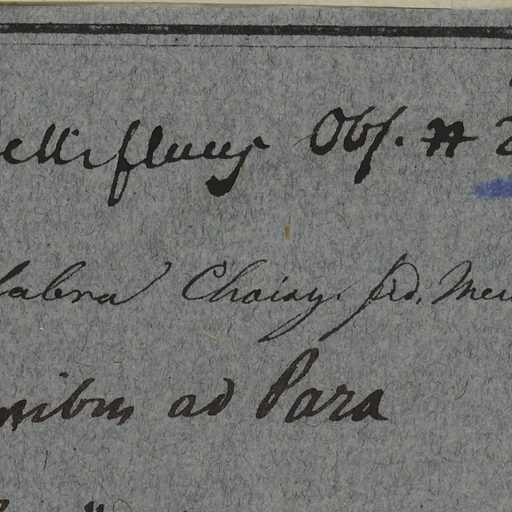 ellifluus Obs. #
labra Choisy. fid. Mei
nibus ad Para